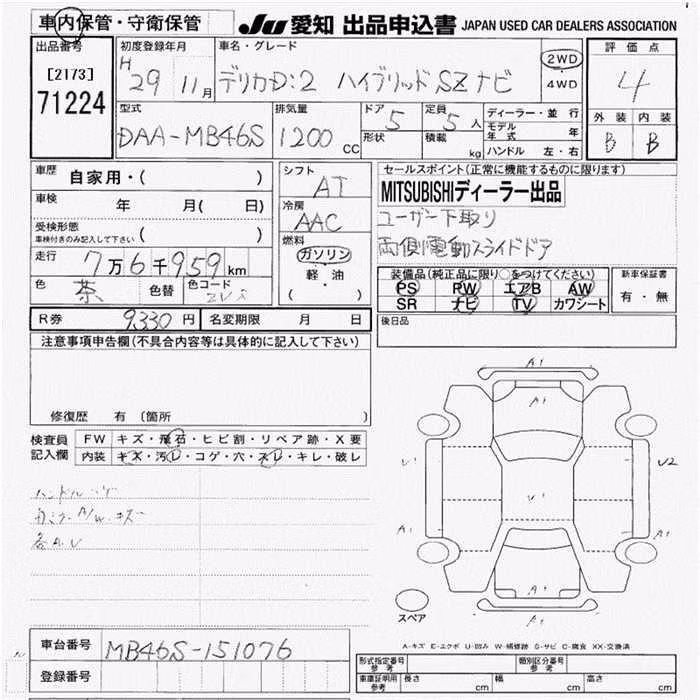 車内保管・守衛保管 JU 愛知 出品申込書 JAPAN USED CAR DEALERS ASSOCIATION
出品番号 初度登録年月 車名・グレード 評価点
[2173] H 29 11月 デリカD:2 ハイブリッド SZ ナビ 2WD 4
71224 4WD
型式 排気量 ドア 定員 ディーラー・並行 外装 内装
DAA-MB46S 1200 CC 5 5人 モデル年式 年 B B
形状 積載 kg ハンドル 左・右
車歴 自家用・( ) シフト セールスポイント(正常に機能するものに限ります)
AT MITSUBISHIディーラー出品
車検 年 月( 日) 冷房 ユーザー下取り
受検形態 AAC
車検付きのみ記入して下さい ( ) 燃料 両側電動スライドドア
走行 7万6千959km ガソリン 装備品(純正品に限り○をつけてください) 新車保証書
色 茶 色替 色コード 軽油 PS PW エアB AW 有・無
( ・ ) SR ナビ TV カワシート
R券 9330円 名変期限 月 日 後日品
注意事項申告欄(不具合内容等は具体的に記入して下さい)
修復歴 有 (箇所 )
検査員 FW キズ・飛石・ヒビ割・リペア跡・X要
記入欄 内装 キズ・汚レ・コゲ・穴・スレ・キレ・破レ
ハンドル
A/W.キズ
各A.U
A1
A1
U1 U1 U2
A1 A1
A1
A1
スペア
A-キズ E-エクボ U-凹み W-補修跡 S-サビ C-腐食 XX-交換済
車台番号 MB46S-151076
登録番号
形式指定番号 参考 類別区分番号 参考
車庫証明用 参考 長さ cm 幅 cm 高さ cm